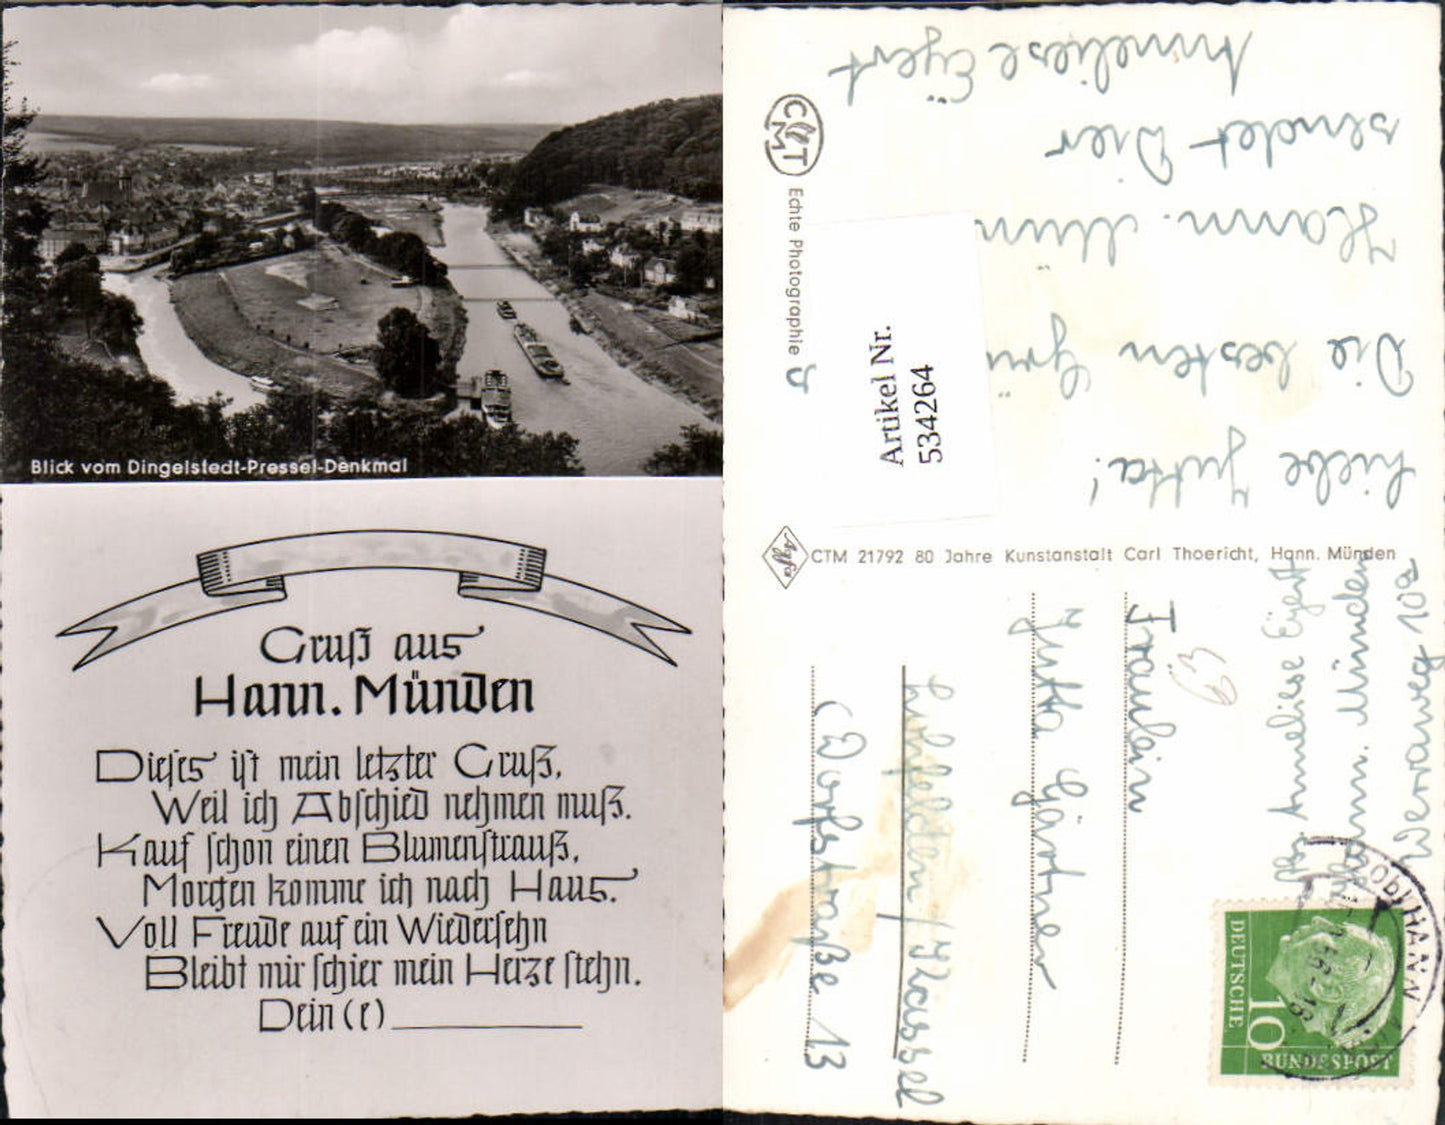 Blick vom Dingelstedt-Pressel-Denkmal
Gruß aus
Hann. Münden
Dieses ist mein letzter Gruß,
Weil ich Abschied nehmen muß.
Kauf schon einen Blumenstrauß,
Morgen komme ich nach Haus.
Voll Freude auf ein Wiedersehn
Bleibt mir schier mein Herze stehn.
Dein(e)
Liebe Jutta!
Die besten
Hann.
sendet Dier
Anneliese Eyert
CMT
Echte Photographie
Artikel Nr.
534264
Agfa
CTM 21792 80 Jahre Kunstanstalt Carl Thoericht, Hann. Münden
Anneliese Eyert
Hann. Münden
Werraweg 10a
Fräulein
Jutta Gärtner
Lohfelden / Kassel
Dorfstraße 13
DEUTSCHE
BUNDESPOST
10
HANN